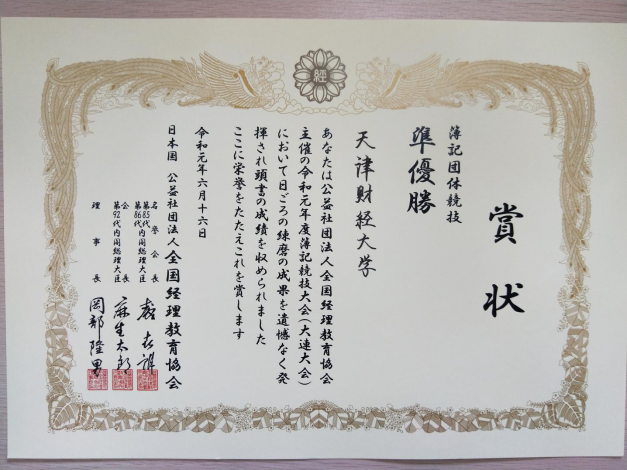 経
賞状
簿記団体競技
準優勝
天津财经大学
あなたは公益社団法人全国経理教育協会
主催の令和元年度簿記競技大会(大連大会)
において日ごろの練磨の成果を遺憾なく発
揮され頭書の成績を収められました
ここに栄誉をたたえこれを賞します
令和元年六月十六日
日本国 公益社団法人 全国経理教育協会
名誉会長
第85代
第86代
内閣総理大臣
会長
第92代内閣総理大臣
麻生太郎
理事長
岡部隆男